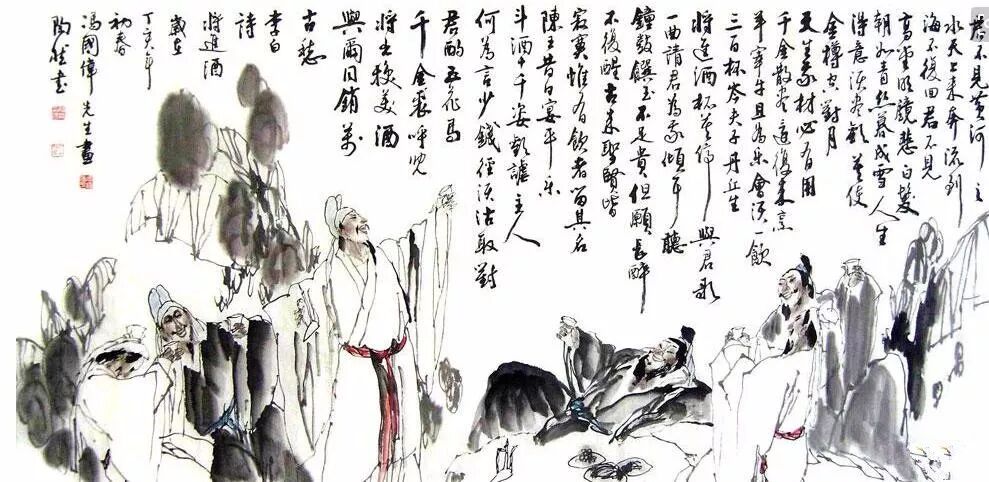 君不見黃河之
水天上来奔流到
海不復回君不見
高堂明鏡悲白髮
朝如青丝暮成雪人生
得意須尽歡莫使
金樽空對月
天生我材必有用
千金散尽還復来烹
羊宰牛且為乐會須一飲
三百杯岑夫子丹丘生
将進酒杯莫停與君歌
一曲請君為我傾耳聽
鐘鼓饌玉不足貴但願長醉
不復醒古来聖賢皆
寂寞惟有飲者留其名
陳王昔日宴平乐
斗酒十千恣歡謔主人
何為言少錢径須沽取對
君酌五花馬
千金裘呼兒
将出換美酒
與爾同銷万
古愁
李白
詩
将進酒
歲在
丁亥年
初春
馮國偉先生畫
陶然书